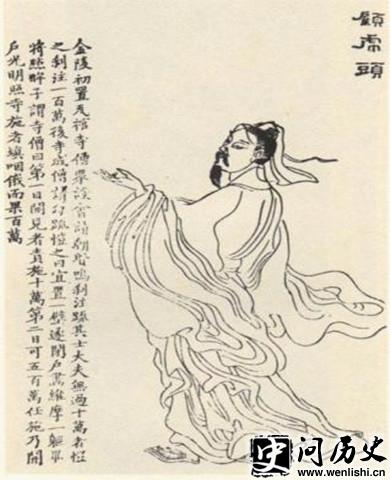 顧虎頭
金陵初置瓦棺寺僧眾設會請朝賢鳴刹注疏其士大夫無過十萬者愷
之刹注一百萬後寺成僧請勾疏愷之曰宜置一壁遂閉戶畫維摩一軀畢
將點眸子謂寺僧曰第一日開見者責施十萬第二日可五百萬任施乃開
戶光明照寺施者填咽俄而果百萬
问历史
www.wenlishi.cn